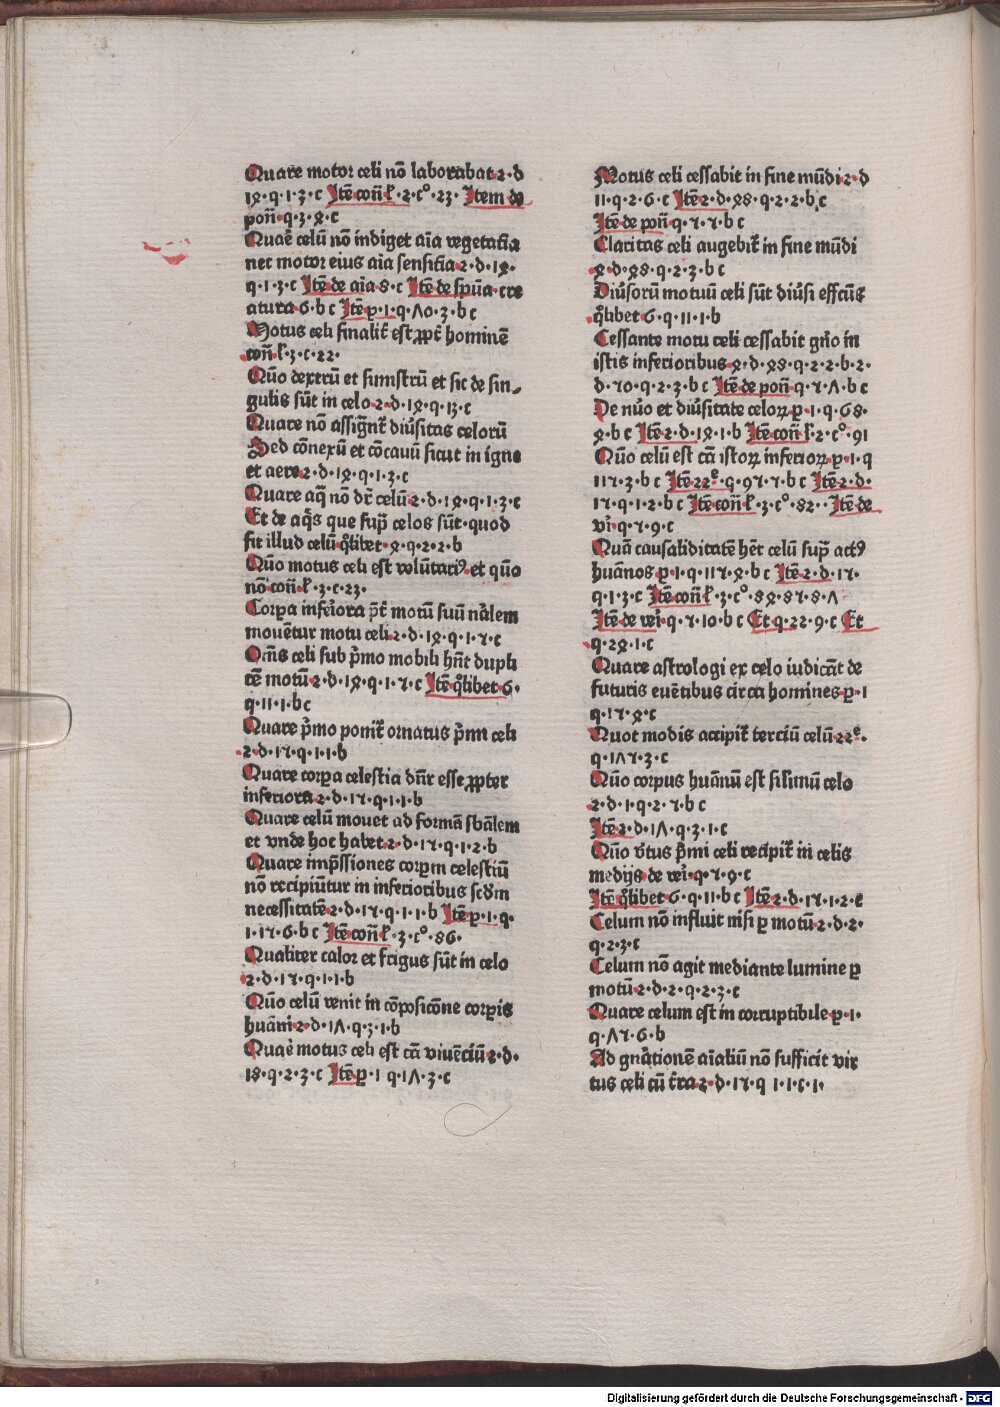 Quare motor celi nō laborabat·2·d
14·q·1·3·c Itē cōn̄ ł·2·c°·23· Item de
pon̄·q·3·4·c
Quaē celū nō indiget aīa vegetatīa
nec motor eius aīa sensitīa·2·d·14·
q·1·3·c Itē de aīa·8·c Itē de spūa·cre
atura·6·bc Itē p·1·q·Λ0·3·bc
Motus celi finalit̄ est ꝓpt̄ hominē
con̄·ł·3·c·22·
Quō dextrū et sinistrū et sic de sin⸗
gulis sūt in celo·2·d·14·q·13·c
Quare nō assignt̄ diūsitas celorū
Sed cōnexū et cōcauū sicut in igne
et aere·2·d·14·q·1·3·c
Quare aq̄ nō dr̄ celū·2·d·14·q·1·3·c
Et de aq̄s que sup̄ celos sūt·quod
fit illud celū q̄libet·4·q·2·2·b
Quō motus celi est volūtariꝰ·et quō
nō·con̄·ł·3·c·23·
Corpa inferiora p̄t motū suū nālem
mouētur motu celi·2·d·14·q·1·7·c
Om̄s celi sub p̄mo mobili hn̄t dupli
cē motū·2·d·14·q·1·7·c Itē q̄libet·6·
q·11·1·bc
Quare p̄mo ponit̄ ornatus p̄mi celi
2·d·17·q·1·1·b
Quare corpa celestia dn̄r esse ꝓpter
inferiora·2·d·17·q·1·1·b
Quare celū mouet ad formā sb̄alem
et vnde hoc habet·2·d·17·q·1·2·b
Quare imp̄ssiones corpm celestiū
nō recipiūtur in inferioribus scd̄m
necessitatē·2·d·17·q·1·1·b Itē p·1·q·
1·17·6·bc Itē con̄ ł·3·c°·86·
Qualiter calor et frigus sūt in celo
2·d·17·q·1·1·b
Quō celū venit in cōposicōne corpis
huāni·2·d·1Λ·q·3·1·b
Quaē motus celi est cā viuēciū·2·d·
18·q·2·3·c Itē p·1 q·1Λ·3·c
Motus celi cessabit in fine mūdi·2·d
11·q·2·6·c Itē·2·d·48·q·2·2·b·c
Itē de pon̄·q·7·7·bc
Claritas celi augebit̄ in fine mūdi
4·d·48·q·2·3·bc
Diūsorū motuū celi sūt diūsi effcūs
q̄libet·6·q·11·1·b
Cessante motu celi cessabit gn̄o in
istis inferioribus·4·d·48·q·2·2·b·2·
d·70·q·2·3·bc Itē de pon̄·q·7·Λ·bc
De nūo et diūsitate celoꝝ·p·1·q·68·
4·bc Itē·2·d·14·1·b Itē con̄ ł·2·c°·91
Quō celū est cā istoꝝ inferioꝝ·p·1·q
117·3·bc Itē 22ᵉ·q·97·7·bc Itē·2·d·
17·q·1·2·bc Itē con̄ ł·3·c°·82·· Itē de
vī·q·7·9·c
Quā causaliditatē hēt celū sup̄ actꝰ
huānos·p·1·q·117·4·bc Itē·2·d·17·
q·1·3·c Itē con̄ ł·3·c°·84·87·8·Λ
Itē de veī·q·7·10·bc Et q·22·9·c Et
q·24·1·c
Quare astrologi ex celo iudicāt de
futuris euētibus circa homines·p·1
q·17·4·c
Quot modis accipit̄ terciū celū·22ᵉ·
q·1Λ7·3·c
Quō corpus huānū est silimū celo
2·d·1·q·2·7·bc
Itē·2·d·1Λ·q·3·1·c
Quō v̄tus p̄mi celi recipit̄ in celis
medijs·de veī·q·7·9·c
Itē q̄libet·6·q·11·bc Itē·2·d·17·1·2·c
Celum nō influit nisi p motū·2·d·2·
q·2·3·c
Celum nō agit mediante lumine p
motū·2·d·2·q·2·3·c
Quare celum est in corruptibile·p·1·
q·Λ7·6·b
Ad gnātionē aīaliū nō sufficit vir
tus celi cū t̄ra·2·d·17·q 1·1·c·1·
Digitalisierung gefördert durch die Deutsche Forschungsgemeinschaft - DFG